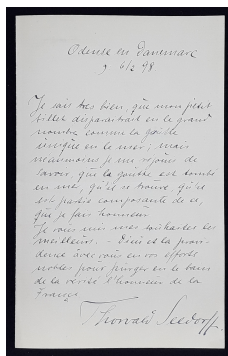 Odense en Danemarc
9 6/2 98
Je sais très bien, que mon petit
billet disparaitrait en le grand
nombre comme la goutte
unique en le mer; mais
neanmoins je me rejouis de
savoir, que la goutte est tombé
en mer, qu'il se trouve, qu'il
est partie composante de ce,
que je fais honneur
Je vous mes souhaites les
meilleurs. - Dieu et la provi-
dence avec vous en vos efforts
nobles pour purger en le bain
de la verité l'honneur de la
France
Thorvald Seedorff.